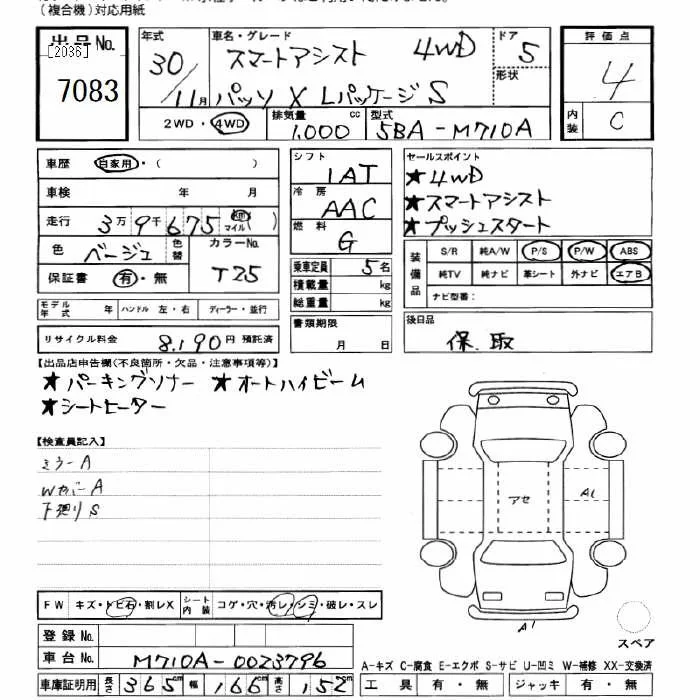 (複合機)対応用紙
出品No.
[2036]
7083
年式
30/11月
車名・グレード
スマートアシスト 4WD
パッソ X LパッケージS
ドア
5
形状
評価点
4
内装
C
2WD・4WD
排気量 1,000 cc
型式 5BA-M710A
車歴 自家用・( )
車検 年 月
走行 3万9千675 km マイル ( )
色 ベージュ 色替
カラーNo. T25
保証書 有・無
モデル年式 年 ハンドル 左・右 ディーラー・並行
リサイクル料金 8,190円 預託済
シフト
IAT
冷房
AAC
燃料
G
乗車定員 5名
積載量 kg
総重量 kg
書類期限
月 日
セールスポイント
★4WD
★スマートアシスト
★プッシュスタート
装備品
S/R 純A/W P/S P/W ABS
純TV 純ナビ 革シート 外ナビ エアB
ナビ型番:
後日品
保.取
【出品店申告欄(不良箇所・欠品・注意事項等)】
★パーキングソナー ★オートハイビーム
★シートヒーター
【検査員記入】
ミラーA
WカバーA
下廻りS
アセ
A1
A1
スペア
FW キズ・トビ石・割レX
シート内装 コゲ・穴・汚レ・シミ・破レ・スレ
登録No.
車台No. M710A-0023796
車庫証明用 長さ 365cm 幅 166cm 高さ 152cm
A-キズ C-腐食 E-エクボ S-サビ U-凹ミ W-補修 XX-交換済
工具 有・無 ジャッキ 有・無